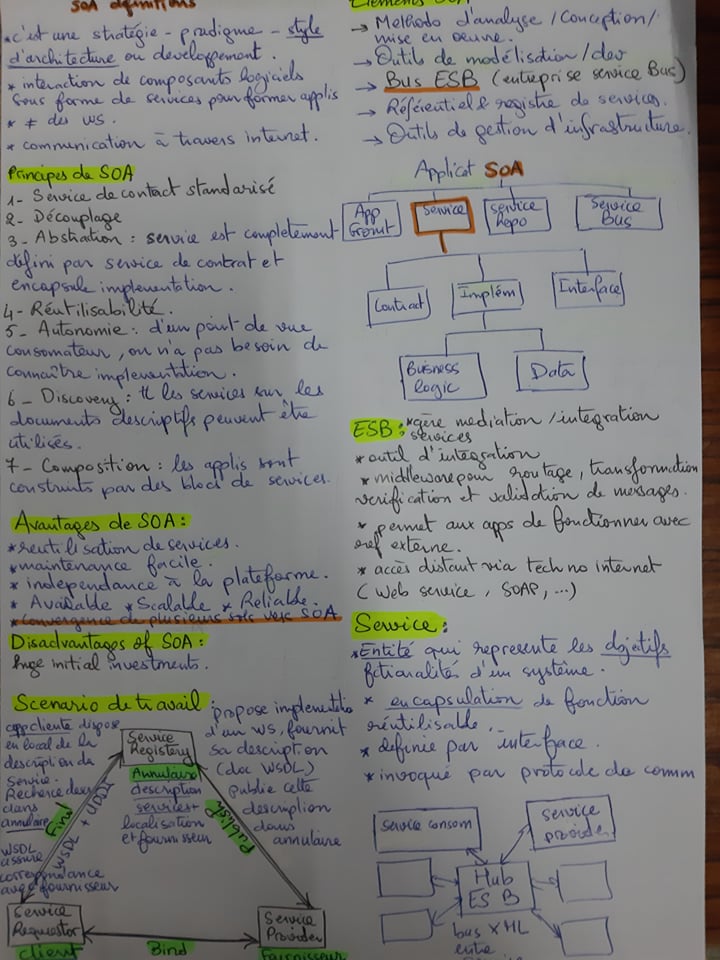 SOA definitions
* c'est une stratégie - pradigme - style
d'architecture ou developpement.
* interaction de composants logiciels
sous forme de services pour former applis
* ≠ des WS.
* communication à travers internet.
Principes de SOA
1- Service de contact standarisé
2- Découplage
3- Abstration : service est completement
défini par service de contrat et
encapsule implementation.
4- Réutilisabilité.
5- Autonomie : d'un point de vue
consomateur, on n'a pas besoin de
connaître implementation.
6- Discovery : tt les services sur les
documents descriptifs peuvent être
utilisés.
7- Composition : les applis sont
construits par des blocs de services.
Avantages de SOA :
* reutilisation de services.
* maintenance facile.
* independance à la plateforme.
* Available * Scalable * Reliable.
* convergence de plusieurs sols vers SOA
Disadvantages of SOA :
huge initial investments.
Scenario de travail
app cliente dispose
en local de la
description du
Service.
Recherche dans
annuaire
WSDL
assure
correspondance
avec fournisseur
Find
WSDL + UDDI
Service
Registery
Annuaire
description
services +
localisation
et fournisseur
Publish
propose implementatio
d'un WS, fournit
sa description
(doc WSDL)
publie cette
description
dans
annulaire
Service
Requestor
client
Bind
Service
Provider
Fournisseur
Elements SOA
→ Methodo d'analyse / Conception /
mise en oeuvre.
→ Outils de modélisation / dev
→ Bus ESB (entreprise service Bus)
→ Référentiel & registre de services.
→ Outils de gestion d'infrastructure.
Applicat SOA
App
Front
Service
service
Repo
Service
Bus
Contract
Implém
Interface
Business
logic
Data
ESB : * gère mediation / integration
services
* outil d'intégration
* middleware pour routage, transformation
verification et validation de messages.
* permet aux apps de fonctionner avec
ref externe.
* accès distant via techno internet
(Web service, SOAP, ...)
Service :
* Entité qui represente les objetifs
fctionalités d'un système.
* encapsulation de fonction
réutilisable.
* definie par interface.
* invoqué par protocole de comm
Service consom
Service
provider
Hub
ESB
bus XML
entre